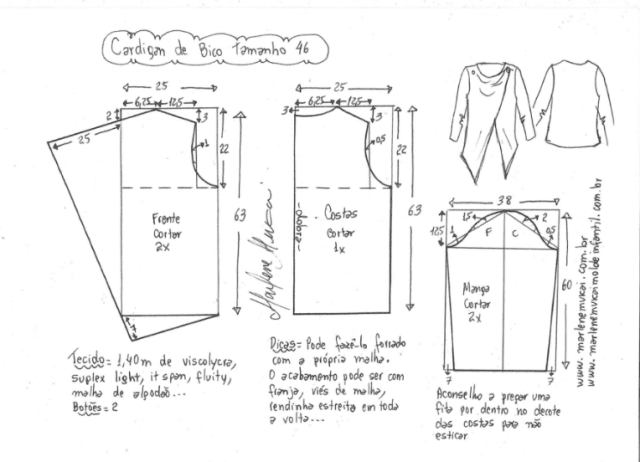 Cardigan de Bico Tamanho 46
25
6,25 12,5
2
3
25
1
22
63
Frente
Cortar
2x
7
25
6,25 12,5
3
3
0,5
22
63
-dobra-
Costas
Cortar
1x
Marlene Mukai
38
12,5
1
1,5
2
0,5
F C
60
Manga
Cortar
2x
7 7
www.marlenemukai.com.br
www.marlenemukaimoldeinfantil.com.br
Tecido= 1,40m de viscolycra,
suplex light, it span, fluity,
malha de algodão...
Botões = 2
Dicas= Pode fazê-lo forrado
com a própria malha.
O acabamento pode ser com
franja, viés de malha,
rendinha estreita em toda
a volta...
Aconselho a prepar uma
fita por dentro no decote
das costas para não
esticar